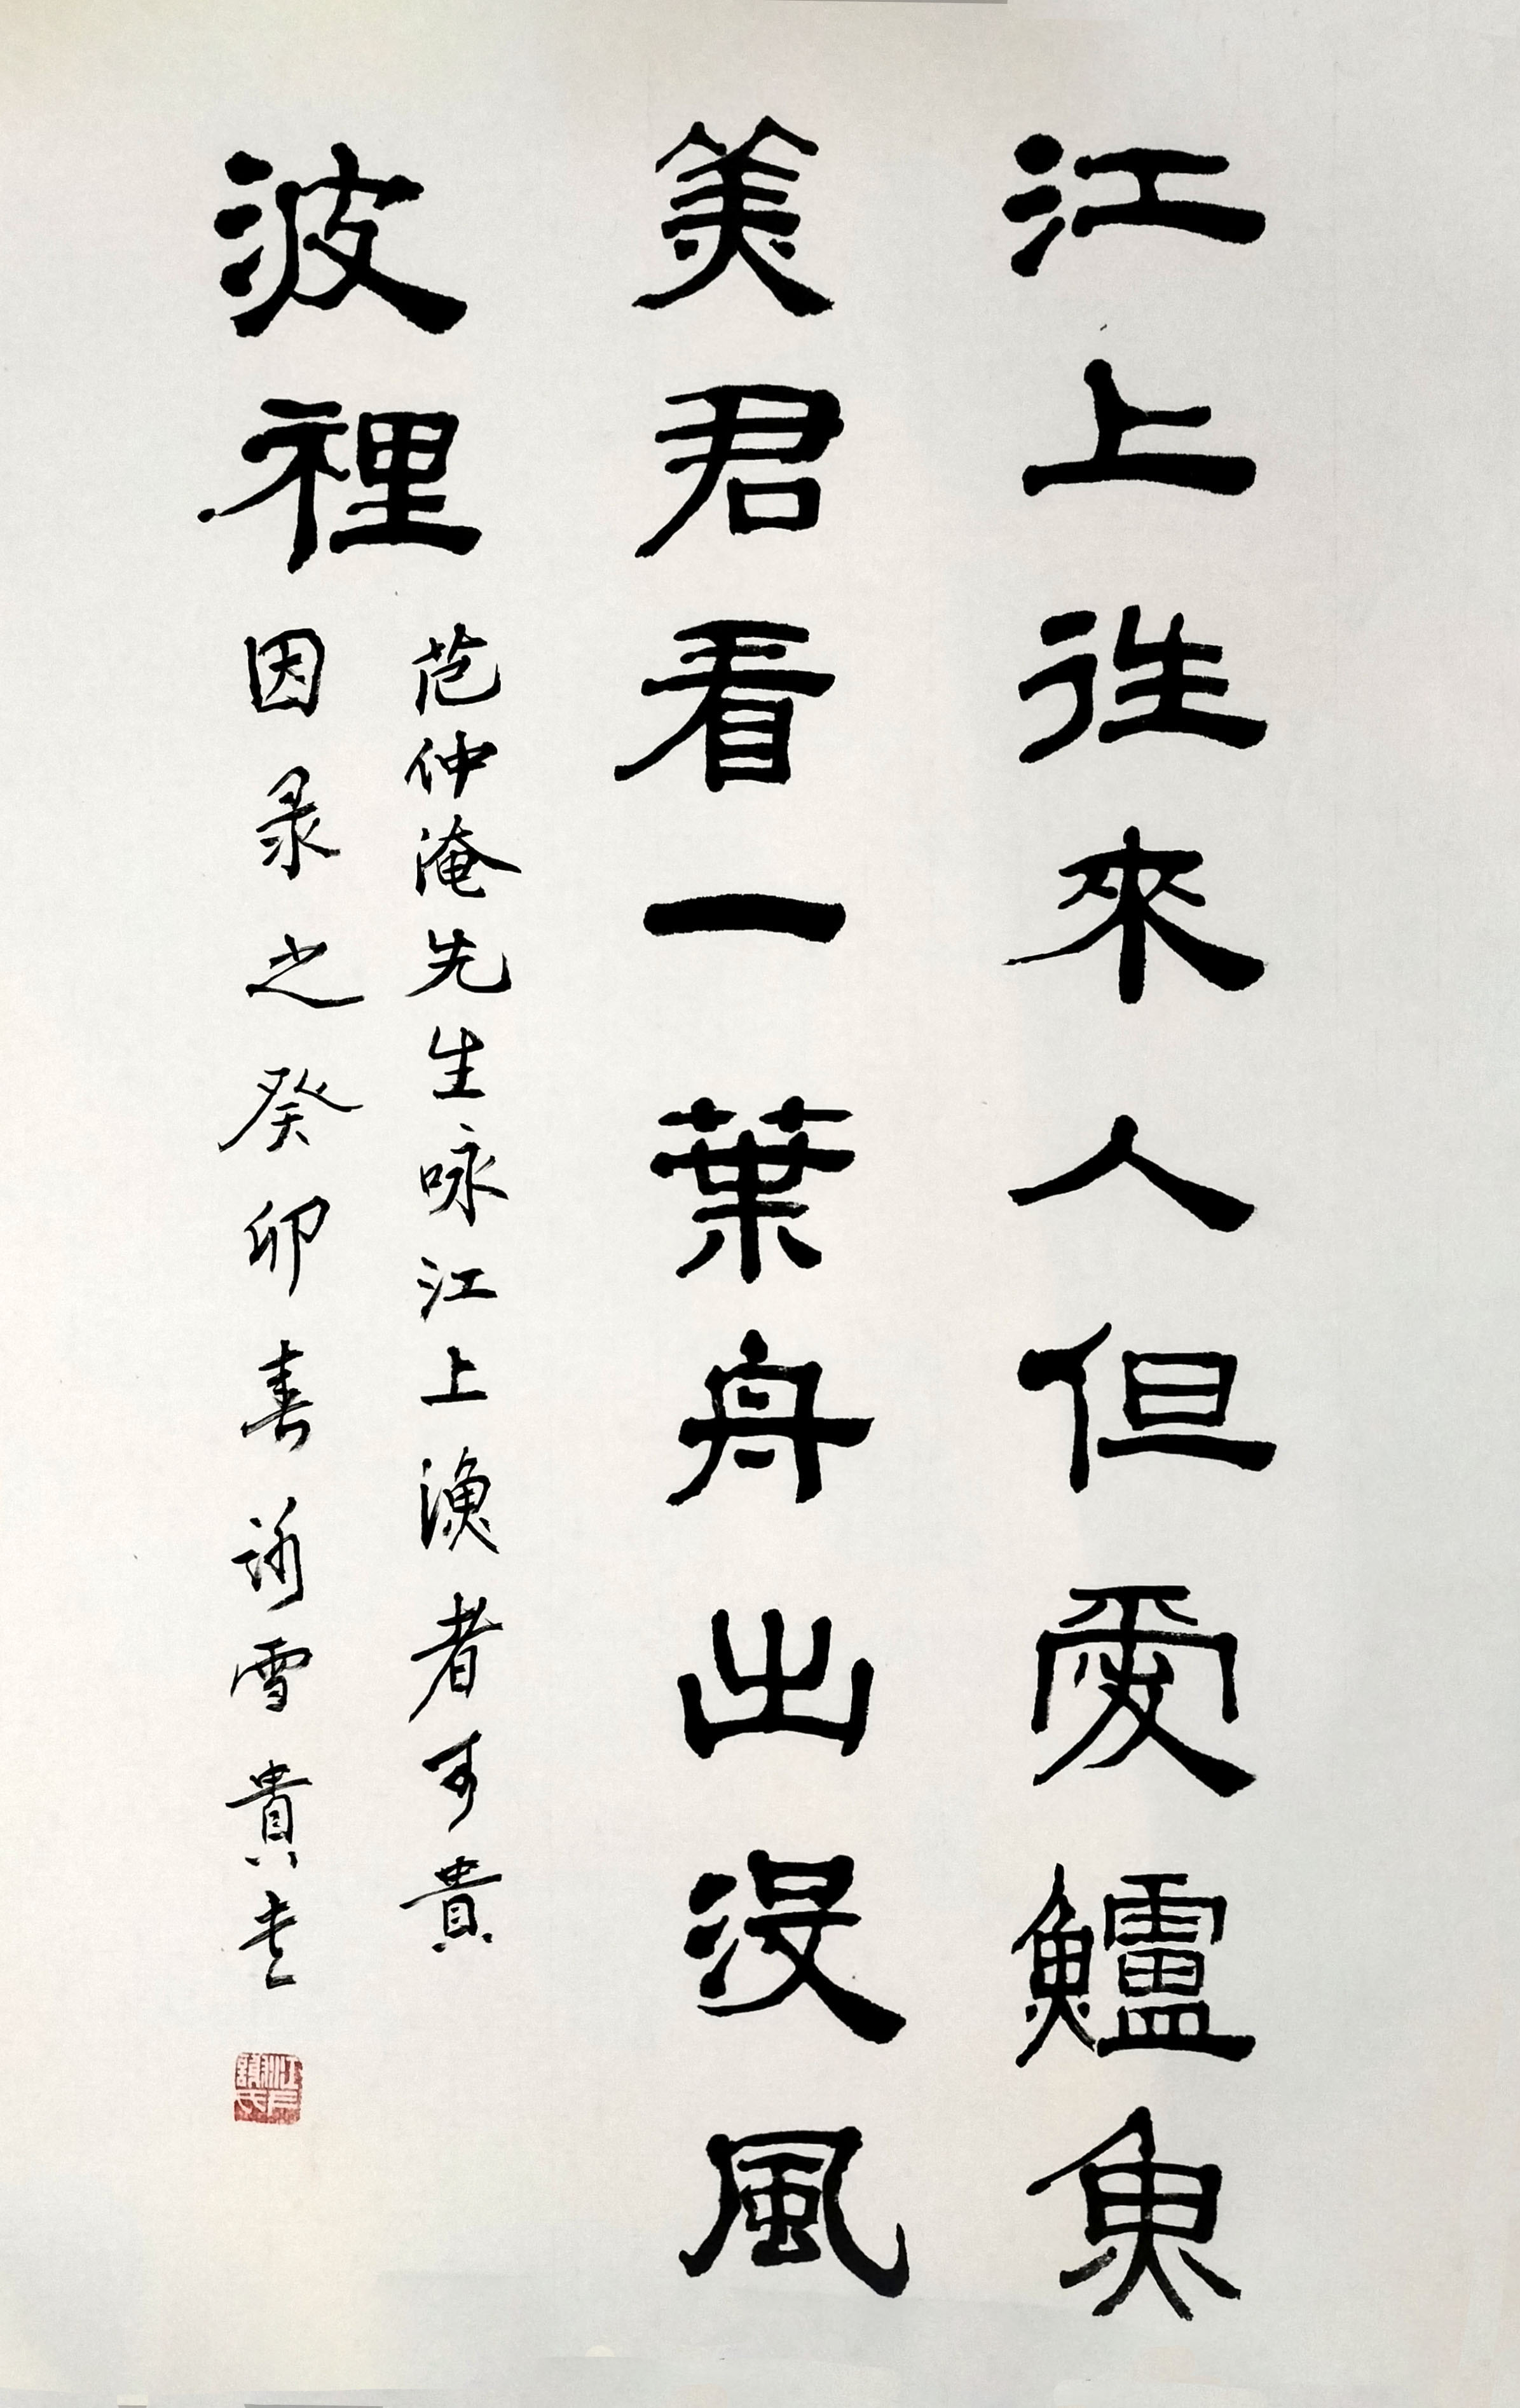 江上往來人但愛鱸魚
美君看一葉舟出沒風
波裡
范仲淹先生咏江上漁者可貴
因录之癸卯春詠雪貴書